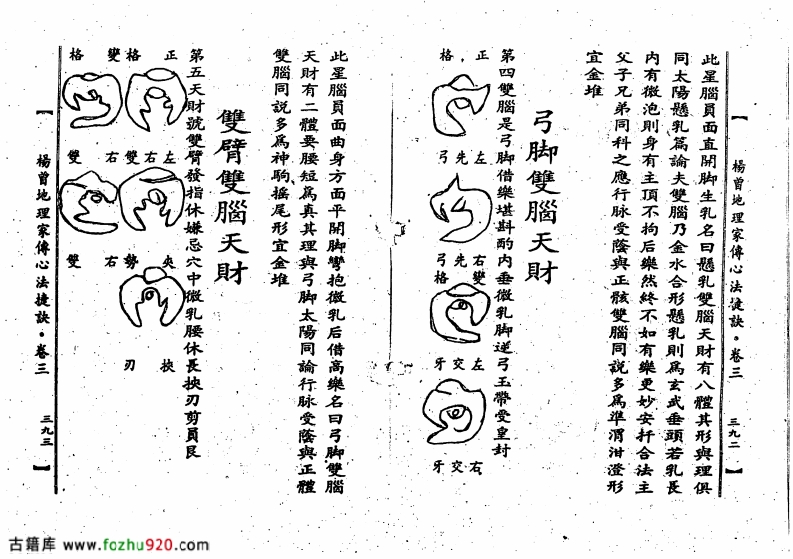 【楊曾地理家傳心法捷訣•卷三 三九二】
此星腦員面直開脚生乳名曰懸乳雙腦天財有八體其形與理俱
同太陽懸乳篇論夫雙腦乃金水合形懸乳則為玄武垂頭若乳長
内有微泡則身有主頂不拘后樂然終不如有樂更妙安扦合法主
父子兄弟同科之應行脉受蔭與正骸雙腦同説多為準渭泔澄形
宜金堆
弓脚雙腦天財
第四雙腦是弓脚借樂堪斟酌内垂微乳脚逆弓玉帶受皇封
正格
左先弓
右先弓
變格
左交牙
右交牙
此星腦員面曲身方面平開脚彎抱微乳后借高樂名曰弓脚雙腦
天財有二體要腰短為真其理與弓脚太陽同論行脉受蔭與正體
雙腦同説多為神駒摇尾形宜金堆
雙臂雙腦天財
第五天財號雙臂發指休嫌忌穴中微乳腰休長挾刃剪員艮
正格
變格
左右雙
右雙
央勢右雙
挾刃
【楊曾地理家傳心法捷訣•卷三 三九三】
古籍库 www.fozhu920.com